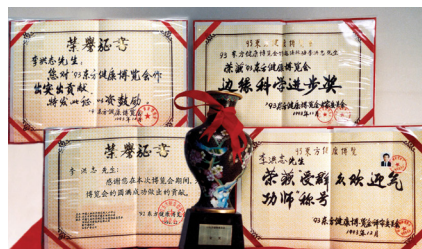 荣誉证书
李洪志先生:
您对'93东方健康博览会作
出突出贡献,
特发此证 以资鼓励
'93东方健康博览会
1993年12月
93东方健康博览会
李洪志先生
荣获'93东方健康博览会
边缘科学进步奖
'93东方健康博览会
1993年12月
荣誉证书
李洪志先生:
感谢您在本次博览会期间,
博览会的圆满成功做出的贡献。
'93东方健康博览会
93东方健康博览
李洪志先生
荣获受群众欢迎气
功师称号
'93东方健康博览会评审委员会
1993年12月